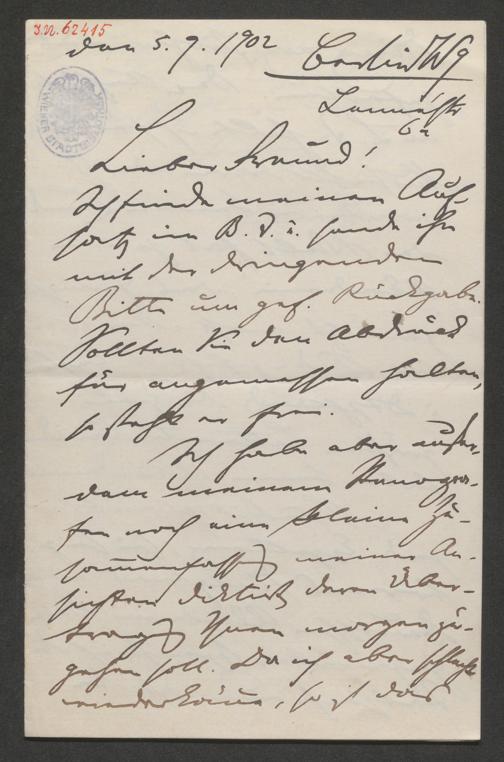 J.N. 62415
den 5. 9. 1902 Berlin W9
Lennéstr
6a
Lieber Freund!
Ich finde meinen Auf-
satz im B. T. u. sende ihn
mit der dringenden
Bitte um gef. Rückgabe.
Sollten Sie den Abdruck
für angemessen halten,
so steht er frei.
Ich habe aber außer-
dem meinem Stenogra-
fen noch eine kleine Zu-
sammenfassg meiner An-
sichten diktirt, deren Über-
tragg Ihnen morgen zu-
gehen soll. Da ich aber schlecht
, so ist das